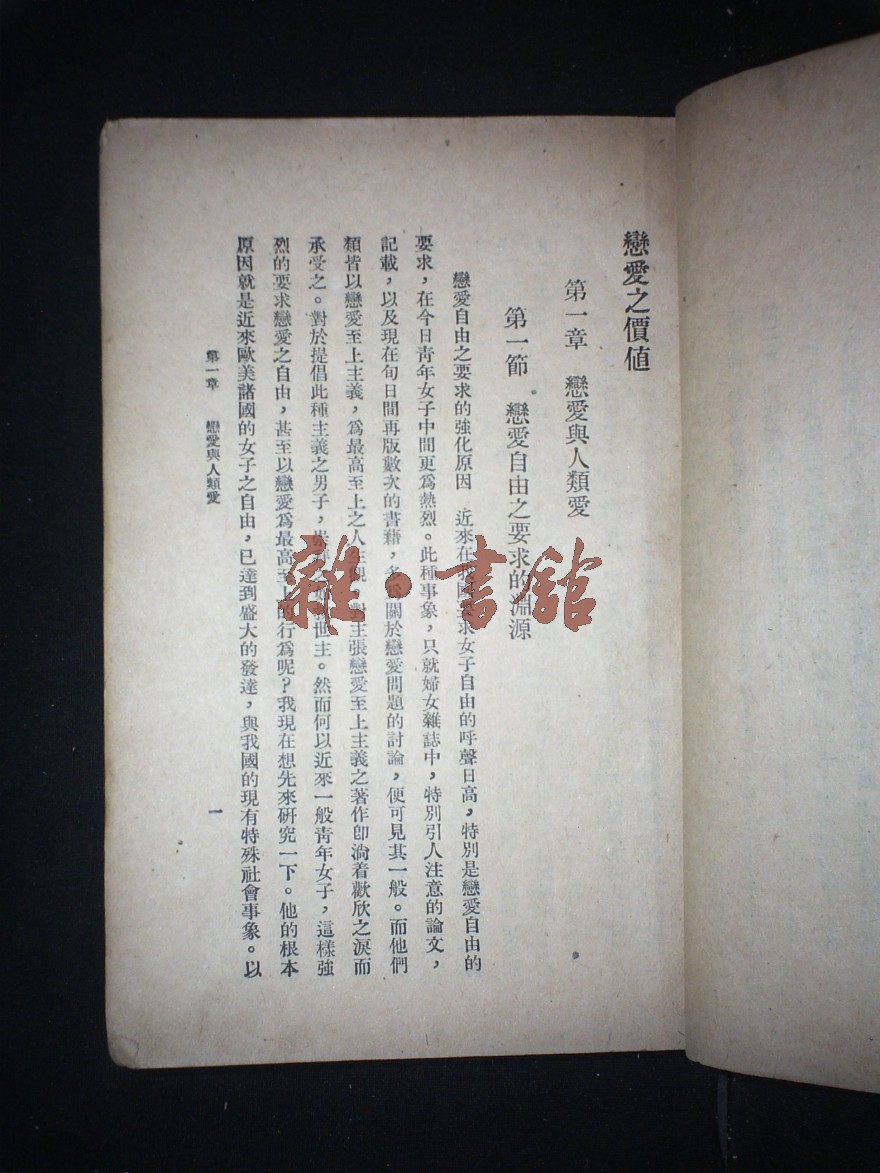 戀愛之價値
第一章 戀愛與人類愛
第一節 戀愛自由之要求的淵源
戀愛自由之要求的強化原因 近來在我國要求女子自由的呼聲日高，特別是戀愛自由的
要求，在今日靑年女子中間更爲熱烈。此種事象，只就婦女雜誌中，特別引人注意的論文，
記載，以及現在旬日間再版數次的書藉，多爲關於戀愛問題的討論，便可見其一般。而他們
類皆以戀愛至上主義，爲最高至上之人生觀，對主張戀愛至上主義之著作卽淌着歡欣之淚而
承受之。對於提倡此種主義之男子，崇拜之如救世主。然而何以近來一般靑年女子，這樣強
烈的要求戀愛之自由，甚至以戀愛爲最高至上的行爲呢？我現在想先來硏究一下。他的根本
原因就是近來歐美諸國的女子之自由，已達到盛大的發達，與我國的現有特殊社會事象。以
第一章 戀愛與人類愛
一
雜·書館